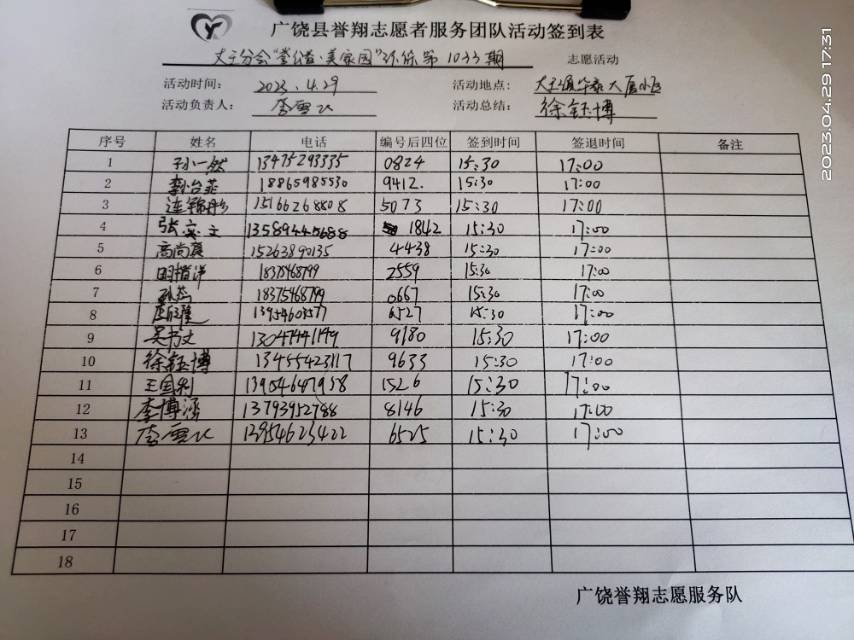 广饶县誉翔志愿者服务团队活动签到表
大王分会"誉 美家园"环保第1033期 志愿活动
活动时间: 2023.4.29 活动地点: 大王 大厦小区
活动负责人: 李雪 活动总结: 徐钰博
序号 姓名 电话 编号后四位 签到时间 签退时间 备注
1 孙一然 13475293335 0824 15:30 17:00
2 18865985530 9412. 15:30 17:00
3 15166268808 5073 15:30 17:00
4 张 文 13589445688 1842 15:30 17:00
5 高尚 15263890135 4438 15:30 17:00
6 18375468799 2559 15:30 17:00
7 孙 18375468799 0667 15:30 17:00
8 6527 15:30 17:00
9 吴书文 9180 15:30 17:00
10 徐钰博 13455423117 9633 15:30 17:00
11 王国利 13954647958 1526 15:30 17:00
12 李博涵 13793952788 8146 15:30 17:00
13 李雪 13954623422 6525 15:30 17:00
14
15
16
17
18
广饶誉翔志愿服务队
2023.04.29 17:31